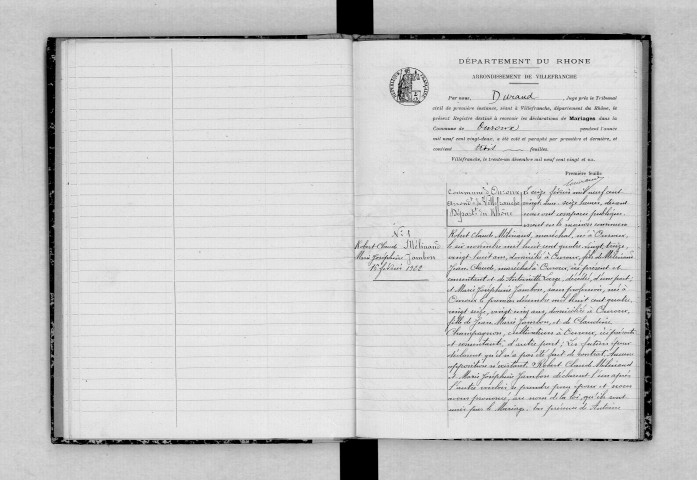 DÉPARTEMENT DU RHONE
ARRONDISSEMENT DE VILLEFRANCHE
Par nous, Durand Juge près le Tribunal
civil de première instance, séant à Villefranche, département du Rhône, le
présent Registre destiné à recevoir les déclarations de Mariages dans la
Commune de Ouroux pendant l'année
mil neuf cent vingt-deux, a été coté et paraphé par première et dernière, et
contient huit feuilles.
Villefranche, le trente-un décembre mil neuf cent vingt et un.
Première feuille
Commune d'Ouroux
Arrond. de Villefranche
Départ. du Rhône
N° 1
Robert Claude Mélinand
Marie Joséphine Jambon
16 février 1922
Le seize février mil neuf cent
vingt deux, seize heures, devant
nous ont comparu publique-
ment en la maison commune
Robert Claude Mélinand, maréchal, né à Ouroux,
le six novembre mil huit cent quatre vingt treize,
vingt huit ans, domicilié à Ouroux, fils de Mélinand
Jean Claude, maréchal à Ouroux, ici présent et
consentant et de Antoinette décédée, d'une part;
et Marie Joséphine Jambon, sans profession, née à
Ouroux le premier décembre mil huit cent quatre
vingt seize, vingt cinq ans, domiciliée à Ouroux,
fille de Jean Marie Jambon, et de Claudine
Champagnon, cultivateurs à Ouroux, ici présents
et consentants, d'autre part; Les futurs époux
déclarent qu'il n'a pas été fait de contrat. Aucune
opposition n'existant, Robert Claude Mélinand
et Marie Joséphine Jambon déclarent l'un après
l'autre vouloir se prendre pour époux et nous
avons prononcé, au nom de la loi, qu'ils sont
unis par le Mariage. En présence de